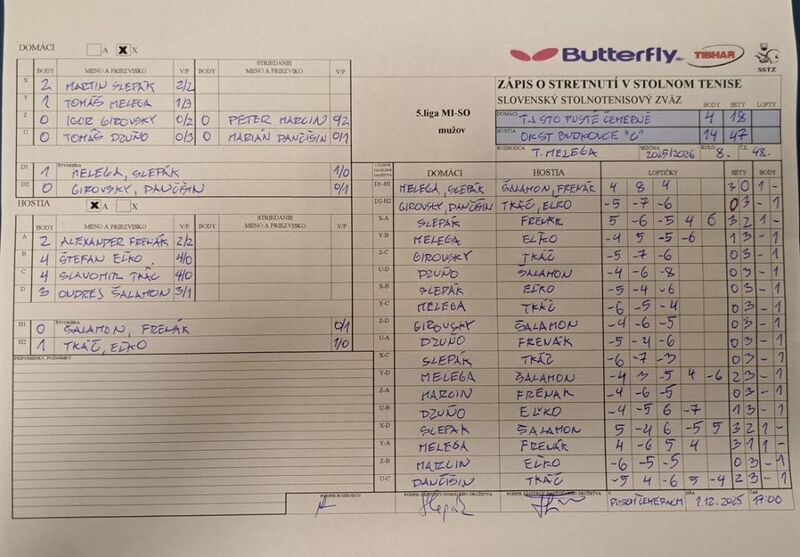 DOMÁCI A X X
Butterfly TIBHAR SSTZ
STRIEDANIE
BODY MENO A PRIEZVISKO V/P BODY MENO A PRIEZVISKO V/P
X 2 MARTIN SLEPÁK 2/2
Y 1 TOMÁŠ MELEGA 1/3
Z 0 IGOR GIROVSKY 0/2 0 PETER MARCIN 0/2
U 0 TOMÁŠ DZUŇO 0/3 0 MARIÁN DANČIŠIN 0/1
ŠTVORHRA
D1 1 MELEGA, SLEPÁK 1/0
D2 0 GIROVSKY, DANČIŠIN 0/1
HOSTIA X A X
STRIEDANIE
BODY MENO A PRIEZVISKO V/P BODY MENO A PRIEZVISKO V/P
A 2 ALEXANDER FRENÁK 2/2
B 4 ŠTEFAN EĽKO 4/0
C 4 SLAVOMIR TKÁČ 4/0
D 3 ONDREJ ŠALAMON 3/1
ŠTVORHRA
H1 0 ŠALAMON, FRENÁK 0/1
H2 1 TKÁČ, EĽKO 1/0
PRIPOMIENKY, POZNÁMKY
5.liga MI-SO
mužov
ZÁPIS O STRETNUTÍ V STOLNOM TENISE
SLOVENSKÝ STOLNOTENISOVÝ ZVÄZ BODY SETY LOPTY
DOMÁCI TJ STO PUSTÉ ČEMERNÉ 4 18
HOSTIA OKST BUDKOVCE "C" 14 47
ROZHODCA T. MELEGA SEZÓNA 2025/2026 KOLO 8. Č.Z. 48.
DOMÁCI HOSTIA LOPTIČKY SETY BODY
D1-H1 MELEGA, SLEPÁK ŠALAMON, FRENÁK 4 8 4 3 0 1 -
D2-H2 GIROVSKY, DANČIŠIN TKÁČ, EĽKO -5 -7 -6 0 3 - 1
X-A SLEPÁK FRENÁK 5 -6 -5 4 6 3 2 1 -
Y-B MELEGA EĽKO -4 5 -5 -6 1 3 - 1
Z-C GIROVSKY TKÁČ -5 -7 -6 0 3 - 1
U-D DZUŇO ŠALAMON -4 -6 -8 0 3 - 1
X-B SLEPÁK EĽKO -5 -4 -6 0 3 - 1
Y-C MELEGA TKÁČ -6 -5 -4 0 3 - 1
Z-D GIROVSKY ŠALAMON -4 -6 -5 0 3 - 1
U-A DZUŇO FRENÁK -5 -4 -6 0 3 - 1
X-C SLEPÁK TKÁČ -6 -7 -3 0 3 - 1
Y-D MELEGA ŠALAMON -4 3 -5 4 -6 2 3 - 1
Z-A MARCIN FRENÁK -4 -6 -5 0 3 - 1
U-B DZUŇO EĽKO -4 -5 6 -7 1 3 - 1
X-D SLEPÁK ŠALAMON 5 -4 6 -5 5 3 2 1 -
Y-A MELEGA FRENÁK 4 -6 5 4 3 1 1 -
Z-B MARCIN EĽKO -6 -5 -5 0 3 - 1
U-C DANČIŠIN TKÁČ -5 4 -6 5 -4 2 3 - 1
PODPIS ROZHODCU PODPIS ZÁSTUPCU DOMÁCEHO DRUŽSTVA PODPIS ZÁSTUPCU HOSŤUJÚCEHO DRUŽSTVA
Slepák V PUSTÝCH ČEMERNÁCH DŇA 7.12.2025 ČAS 17:00